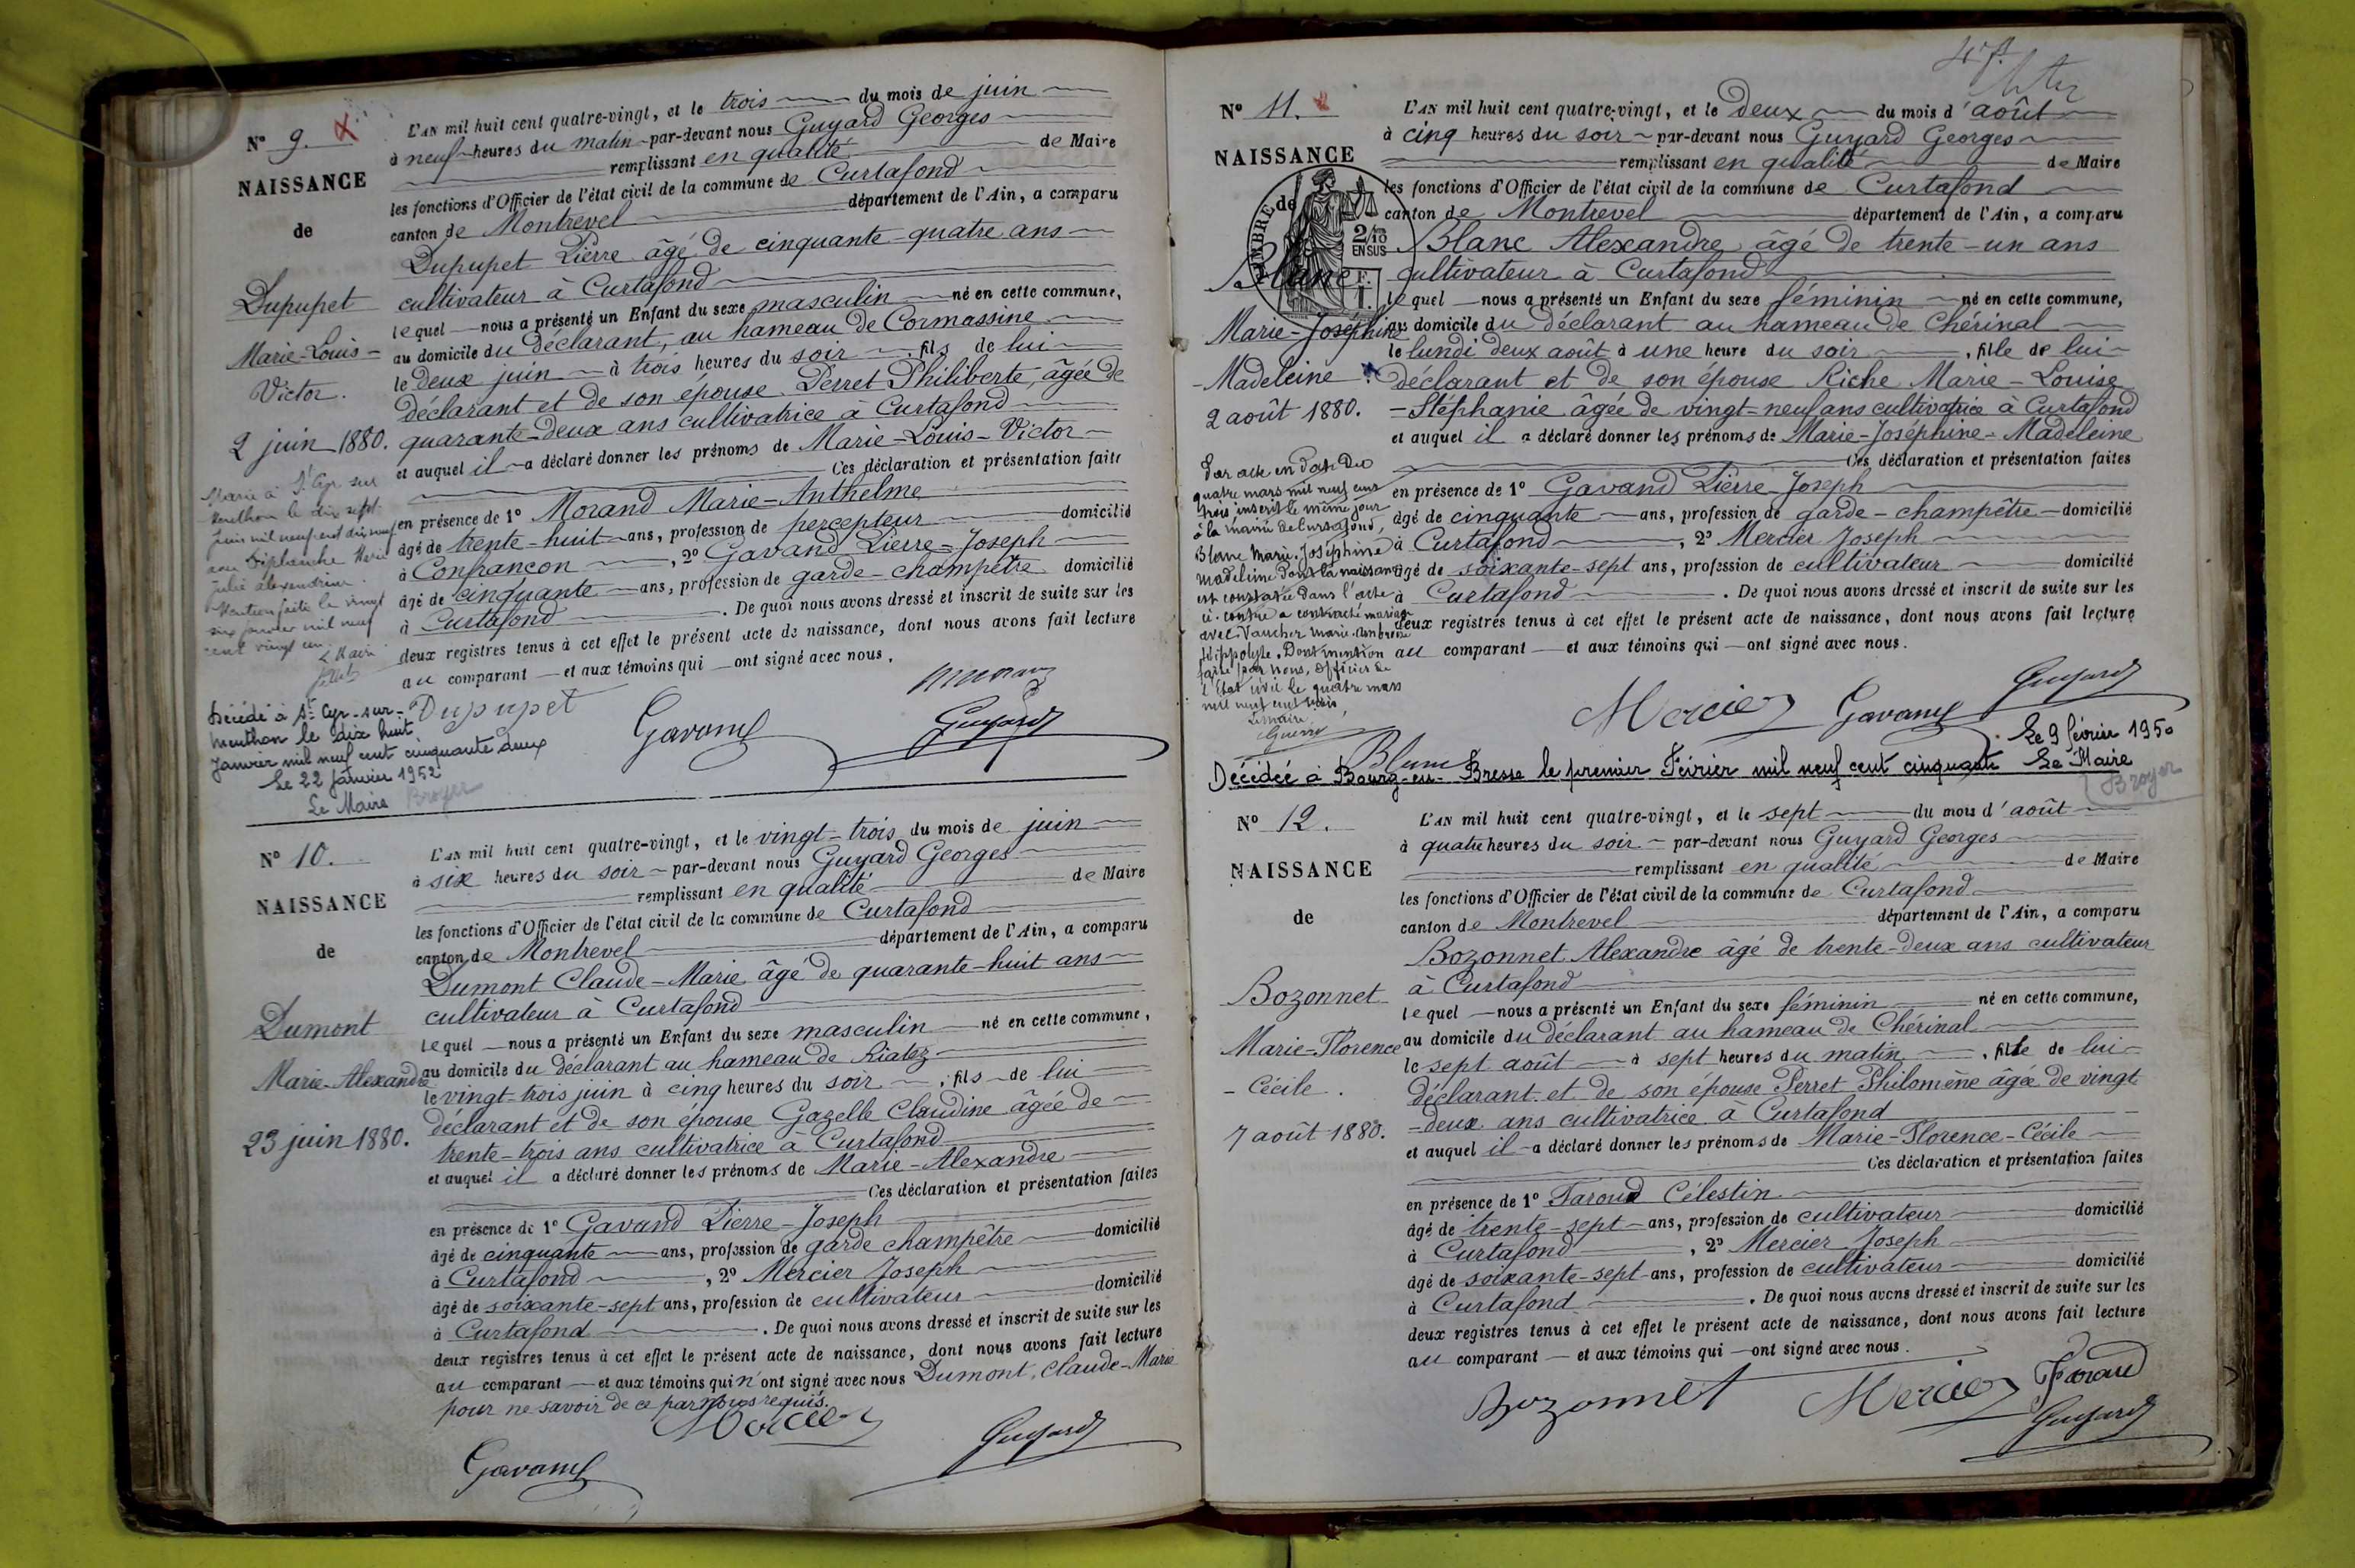 N° 9.
NAISSANCE
de
Dupupet
Marie-Louis-
Victor.
2 juin 1880.
L'AN mil huit cent quatre-vingt, et le trois du mois de juin
à neuf heures du matin par-devant nous Guyard Georges
remplissant en qualité de Maire
les fonctions d'Officier de l'état civil de la commune de Curtafond
canton de Montrevel département de l'Ain, a comparu
Dupupet Pierre âgé de cinquante-quatre ans
cultivateur à Curtafond
lequel nous a présenté un Enfant du sexe masculin né en cette commune,
au domicile du déclarant, au hameau de Cormassine
le deux juin à trois heures du soir, fils de lui
déclarant et de son épouse Perret Philiberte, âgée de
quarante-deux ans cultivatrice à Curtafond
et auquel il a déclaré donner les prénoms de Marie-Louis-Victor
Ces déclaration et présentation faites
en présence de 1° Morand Marie-Anthelme
âgé de trente-huit ans, profession de percepteur domicilié
à Confrançon, 2° Gavand Pierre-Joseph
âgé de cinquante ans, profession de garde-champêtre domicilié
à Curtafond. De quoi nous avons dressé et inscrit de suite sur les
deux registres tenus à cet effet le présent acte de naissance, dont nous avons fait lecture
au comparant et aux témoins qui ont signé avec nous.
Marié à St Cyr sur
Menthon le dix sept
juin mil neuf cent dix neuf
Marie
julie alexandrine.
Mention faite le vingt
six janvier mil neuf
cent vingt un.
Le Maire
Décédé à St Cyr-sur-
Menthon le dix huit
Janvier mil neuf cent cinquante deux
Le 22 Janvier 1952
Le Maire Broyer
Dupupet
Gavand
Guyard
N° 10.
NAISSANCE
de
Dumont
Marie-Alexandre
23 juin 1880.
L'AN mil huit cent quatre-vingt, et le vingt-trois du mois de juin
à six heures du soir par-devant nous Guyard Georges
remplissant en qualité de Maire
les fonctions d'Officier de l'état civil de la commune de Curtafond
canton de Montrevel département de l'Ain, a comparu
Dumont Claude-Marie âgé de quarante-huit ans
cultivateur à Curtafond
lequel nous a présenté un Enfant du sexe masculin né en cette commune,
au domicile du déclarant au hameau de Liatez
le vingt-trois juin à cinq heures du soir, fils de lui
déclarant et de son épouse Gazelle Claudine âgée de
trente-trois ans cultivatrice à Curtafond
et auquel il a déclaré donner les prénoms de Marie-Alexandre
Ces déclaration et présentation faites
en présence de 1° Gavand Pierre-Joseph
âgé de cinquante ans, profession de garde champêtre domicilié
à Curtafond, 2° Mercier Joseph
âgé de soixante-sept ans, profession de cultivateur domicilié
à Curtafond. De quoi nous avons dressé et inscrit de suite sur les
deux registres tenus à cet effet le présent acte de naissance, dont nous avons fait lecture
au comparant et aux témoins qui n'ont signé avec nous Dumont, Claude-Marie
pour ne savoir de ce par nous requis.
Mercier
Guyard
Gavand
N° 11.
NAISSANCE
de
TIMBRE
2/10
EN SUS
Blanc
Marie-Joséphine
-Madeleine
2 août 1880.
L'AN mil huit cent quatre-vingt, et le Deux du mois d'août
à cinq heures du soir par-devant nous Guyard Georges
remplissant en qualité de Maire
les fonctions d'Officier de l'état civil de la commune de Curtafond
canton de Montrevel département de l'Ain, a comparu
Blanc Alexandre âgé de trente-un ans
cultivateur à Curtafond
lequel nous a présenté un Enfant du sexe féminin né en cette commune,
au domicile du déclarant au hameau de Chérinal
le lundi deux août à une heure du soir, fille de lui
déclarant et de son épouse Riche Marie-Louise
-Stéphanie âgée de vingt-neuf ans cultivatrice à Curtafond
et auquel il a déclaré donner les prénoms de Marie-Joséphine-Madeleine
Ces déclaration et présentation faites
en présence de 1° Gavand Pierre-Joseph
âgé de cinquante ans, profession de garde-champêtre domicilié
à Curtafond, 2° Mercier Joseph
âgé de soixante-sept ans, profession de cultivateur domicilié
à Curtafond. De quoi nous avons dressé et inscrit de suite sur les
deux registres tenus à cet effet le présent acte de naissance, dont nous avons fait lecture
au comparant et aux témoins qui ont signé avec nous.
Par acte en date du
quatre mars mil neuf cent
trois inscrit le même jour
à la mairie de Curtafond,
Blanc Marie-Joséphine
Madeleine dont la naissance
est constatée dans l'acte
ci-contre a contracté mariage
avec Vaucher Marie-Ambroise
Hippolyte. Dont mention
faite par nous, officier de
l'Etat civil le quatre mars
mil neuf cent trois
Le maire,
Mercier
Gavand
Guyard
Blanc
Le 9 février 1950
Décédée à Bourg-en-Bresse le premier Février mil neuf cent cinquante Le Maire
Broyer
N° 12.
NAISSANCE
de
Bozonnet
Marie-Florence
-Cécile.
7 août 1880.
L'AN mil huit cent quatre-vingt, et le sept du mois d'août
à quatre heures du soir par-devant nous Guyard Georges
remplissant en qualité de Maire
les fonctions d'Officier de l'état civil de la commune de Curtafond
canton de Montrevel département de l'Ain, a comparu
Bozonnet Alexandre âgé de trente-deux ans cultivateur
à Curtafond
lequel nous a présenté un Enfant du sexe féminin né en cette commune,
au domicile du déclarant au hameau de Chérinal
le sept août à sept heures du matin, fille de lui
déclarant et de son épouse Perret Philomène âgée de vingt
-deux ans cultivatrice à Curtafond
et auquel il a déclaré donner les prénoms de Marie-Florence-Cécile
Ces déclaration et présentation faites
en présence de 1° Faroud Célestin
âgé de trente-sept ans, profession de cultivateur domicilié
à Curtafond, 2° Mercier Joseph
âgé de soixante-sept ans, profession de cultivateur domicilié
à Curtafond. De quoi nous avons dressé et inscrit de suite sur les
deux registres tenus à cet effet le présent acte de naissance, dont nous avons fait lecture
au comparant et aux témoins qui ont signé avec nous.
Bozonnet
Mercier
Faroud
Guyard